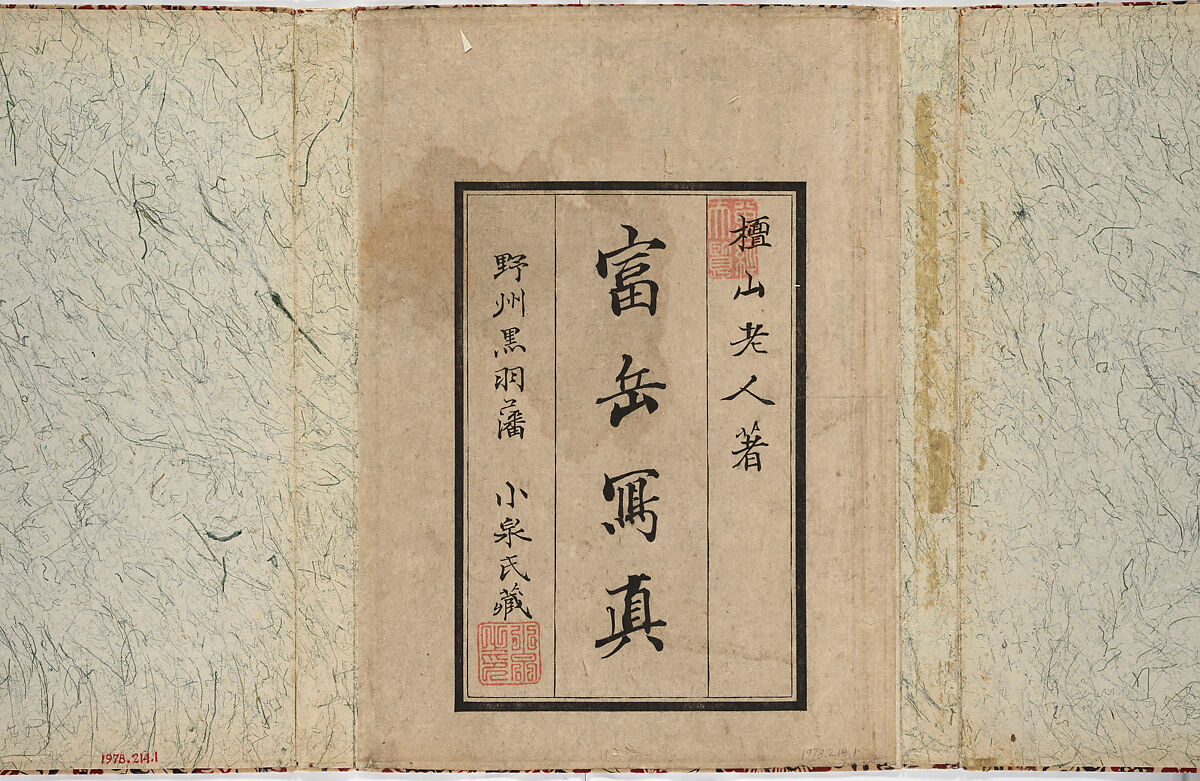 檀山老人著
富岳冩真
野州黒羽藩 小泉氏藏
1978.214.1
1978.214